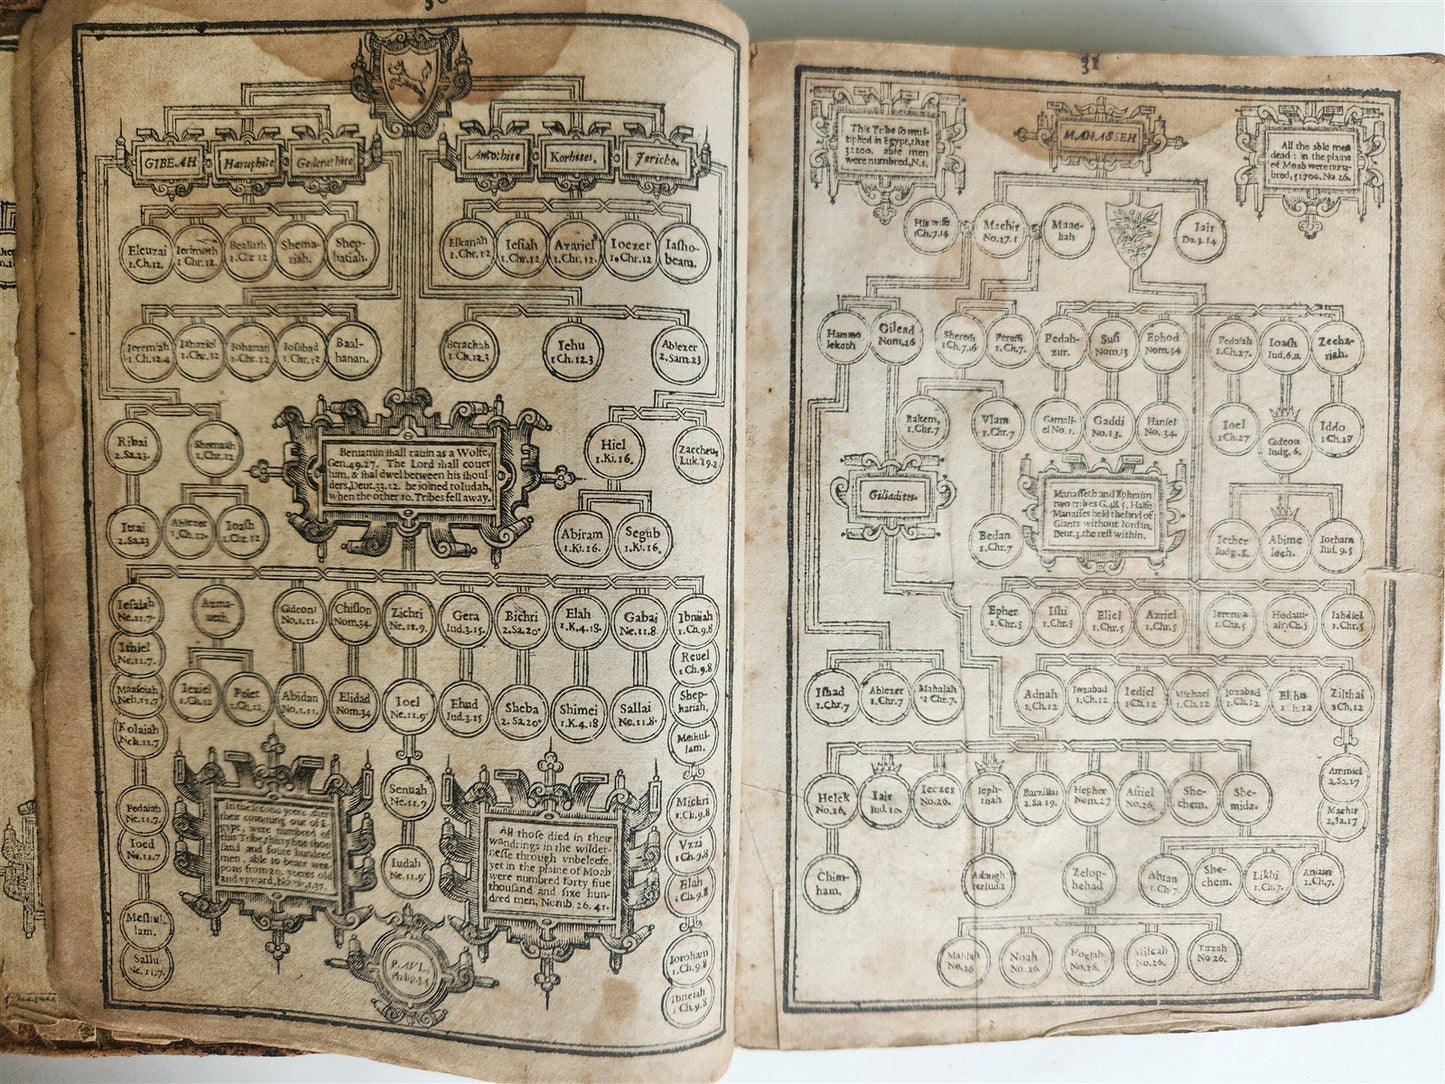 GIBEAH
Haruphite
Gederathite
Antothite
Korhites.
Jericho.
Eleuzai
1.Ch.12.
Ierimoth
1 Chr.12.
Bealiath
1.Chr 12
Shema-
riah.
Shep-
hatiah.
Elkanah
1.Chr.12
Iesiah
1.Chr.12
Azariel
1.Chr.12.
Ioezer
1.Chr.12
Iasho-
beam.
Ieremiah
1 Ch.12.4
Iahaziel
1.Chr.12
Iohanan
1.Chr.12
Iosabad
1.Chr.12
Baal-
hanan.
Berachah
1.Ch.12.3
Iehu
1 Ch.12.3
Abiezer
2.Sam.23
Ribai
2.Sa.23.
Shemaah
1.Chr.12
Beniamin shall rauin as a Wolfe,
Gen.49.27. The Lord shall couer
him, & shal dwel between his shoul-
ders, Deut.33.12. he ioined to Iudah,
when the other 10. Tribes fell away.
Hiel
1.Ki.16.
Zaccheus
Luk.19.2
Ittai
2.Sa.23
Ahiezer
1.Ch.12.
Ioash
1.Chr.12
Abiram
1.Ki.16.
Segub
1.Ki.16.
Iesaiah
Ne.11.7.
Azma-
ueth.
Gideoni
No.1.11.
Chislon
Nom.34.
Zichri
Ne.11.9.
Gera
Iud.3.15.
Bichri
2.Sa.20.
Elah
1.K.4.18.
Gabai
Ne.11.8.
Ibniiah
1.Ch.9.8
Ithiel
Ne.11.7.
Reuel
1 Ch.9.8
Maaseiah
Neh.11.7
Ieziel
1.Ch.12
Pelet
1.Ch.12.
Abidan
No.1.11.
Elidad
Nom.34
Ioel
Ne.11.9
Ehud
Iud.3.15
Sheba
2. Sa.20.
Shimei
1.K.4.18
Sallai
Ne.11.8.
Shep-
hatiah,
Kolaiah
Neh.11.7
Meshul-
lam.
Pedaiah
Ne.11.7.
Senuah
Ne.11.9
Michri
1.Ch.9.8
Ioed
Ne.11.7
Iudah
Ne.11.9
Vzzi
1.Ch.9.8
Elah
1.Ch.9.8
Meshul-
lam.
Sallu
Ne.11.7.
their comming out of E-
gypt, were numbred of
this Tribe, thirty fiue thou-
sand and foure hundred
men, able to beare wea-
pons from 20. yeeres old
and vpward, No.1.37.
All those died in their
wandrings in the wilder-
nesse through vnbeleefe,
yet in the plaine of Moab
were numbred forty fiue
thousand and sixe hun-
dred men, Nomb. 26. 41.
PAVL
Philip.3.5
Ieroham
1.Ch.9.8
Ibneiah
1 Ch.9.8
31
This Tribe so mul-
tiplied in Egypt, that
32200. able men
were numbred, N.1.
MANASSEH
All the able men
dead: in the plaine
of Moab were num-
bred, 52700. No.26.
His wife
1Ch.7.14
Machir
No.27.1
Maac-
hah
Iair
De.3.14
Hammo
leketh
Gilead
Nom.26
Sheresh
1Ch.7.16
Peresh
1.Ch.7.
Pedah-
zur.
Susi
Nom.13
Ephod
Nom.34
Pedaiah
1.Ch.27.
Ioash
Iud.6.11
Zecha-
riah.
Rakem,
1.Chr.7
Vlam
1.Chr.7
Gamali-
el No.1.
Gaddi
No.13.
Haniel
No.34.
Ioel
1Ch.27
Gideon
Iudg. 6.
Iddo
1Ch.27
Gileadites.
Manasseth and Ephraim
two tribes G.48.5. Halfe
Manasses held the land of
Giants without Iordan,
Deut.3. the rest within.
Bedan
1.Chr.7
Iether
Iudg.8.
Abime
lech.
Iotham
Iud.9.5
Epher
1.Chr.5
Ishi
1.Chr.5
Eliel
1.Chr.5
Azriel
1.Chr.5
Ieremia
1.Chr.5
Hodaui-
ah
Iahdiel
1.Chr.5
Ishad
1.Chr.7
Abiezer
1.Chr.7
Mahalah
1 Chr.7
Adnah
1.Ch.12
Iozabad
1.Ch.12
Iediel
1.Ch.12
Michael
1.Ch.12
Iozabad
1.Ch.12
Elihu
1.Ch.12
Zilthai
1Ch.12
Ammiel
2.Sa.17
Helek
No.26,
Iair
Iud.10.
Ieezer
No.26.
Ieph-
thah
Barzillai
2.Sa 19.
Hepher
Nom.27
Asriel
No.26.
She-
chem.
She-
mida.
Machir
2.Sa.17
Chim-
ham.
A daugh
ter Iud.11
Zelop-
hehad
Ahian
1.Ch.7.
She-
chem.
Likhi
1.Ch.7.
Aniam
1.Ch.7.
Mahlah
No.26
Noah
No.26.
Hoglah
No.26.
Milcah
No.26.
Tirzah
No 26.